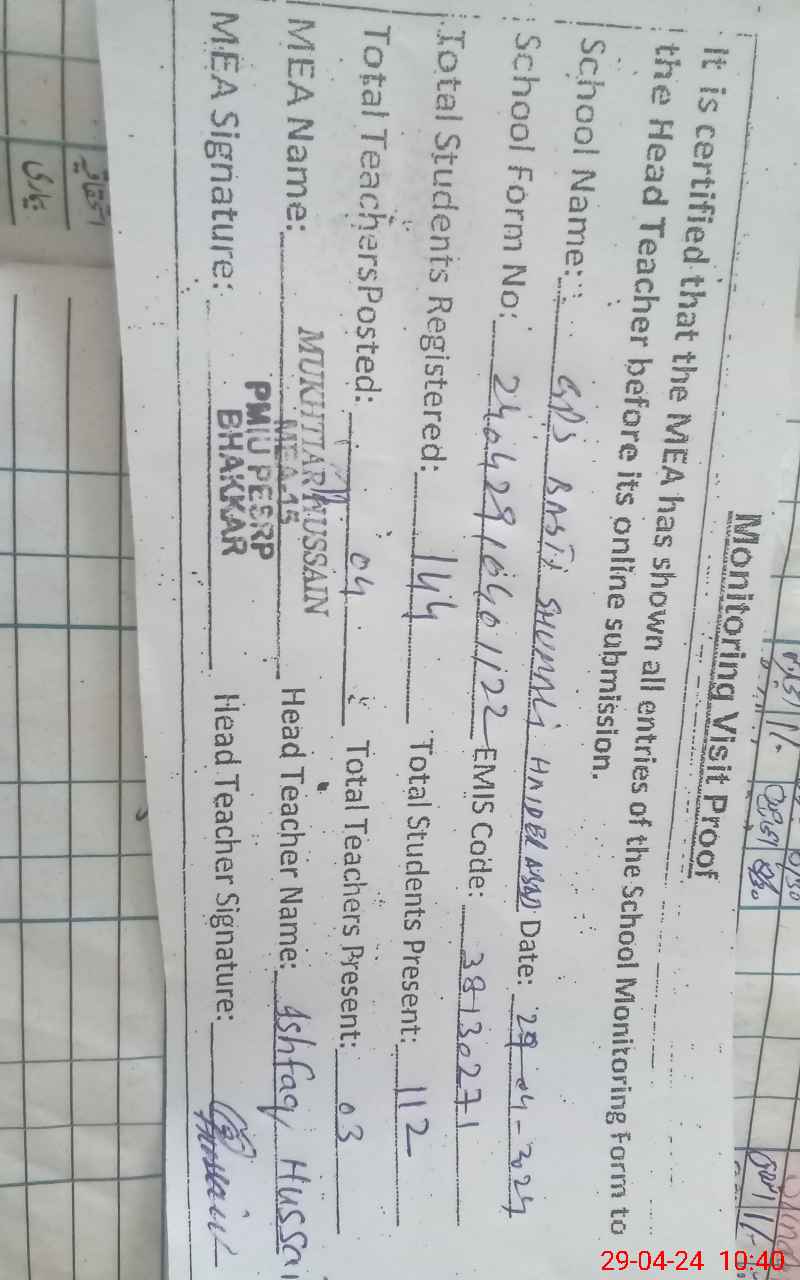 Monitoring Visit Proof
It is certified that the MEA has shown all entries of the School Monitoring Form to
the Head Teacher before its online submission.
School Name: GPS BASTI SHUMALI HAIDER ABAD Date: 29-04-2024
School Form No: 24042910401122 EMIS Code: 38130271
Total Students Registered: 144 Total Students Present: 112
Total Teachers Posted: 04 Total Teachers Present: 03
MEA Name: MUKHTIAR HUSSAIN Head Teacher Name: Ashfaq Hussai
MEA-15
MEA Signature: PMIU PESRP Head Teacher Signature:
BHAKKAR
29-04-24 10:40